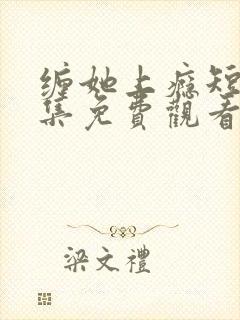 缠她上瘾短
集免費觀看
梁文禮